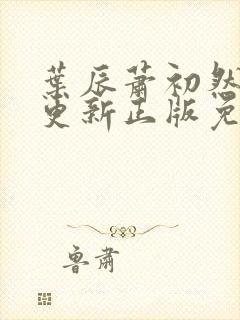 葉辰蕭初然
更新正版免
魯肅